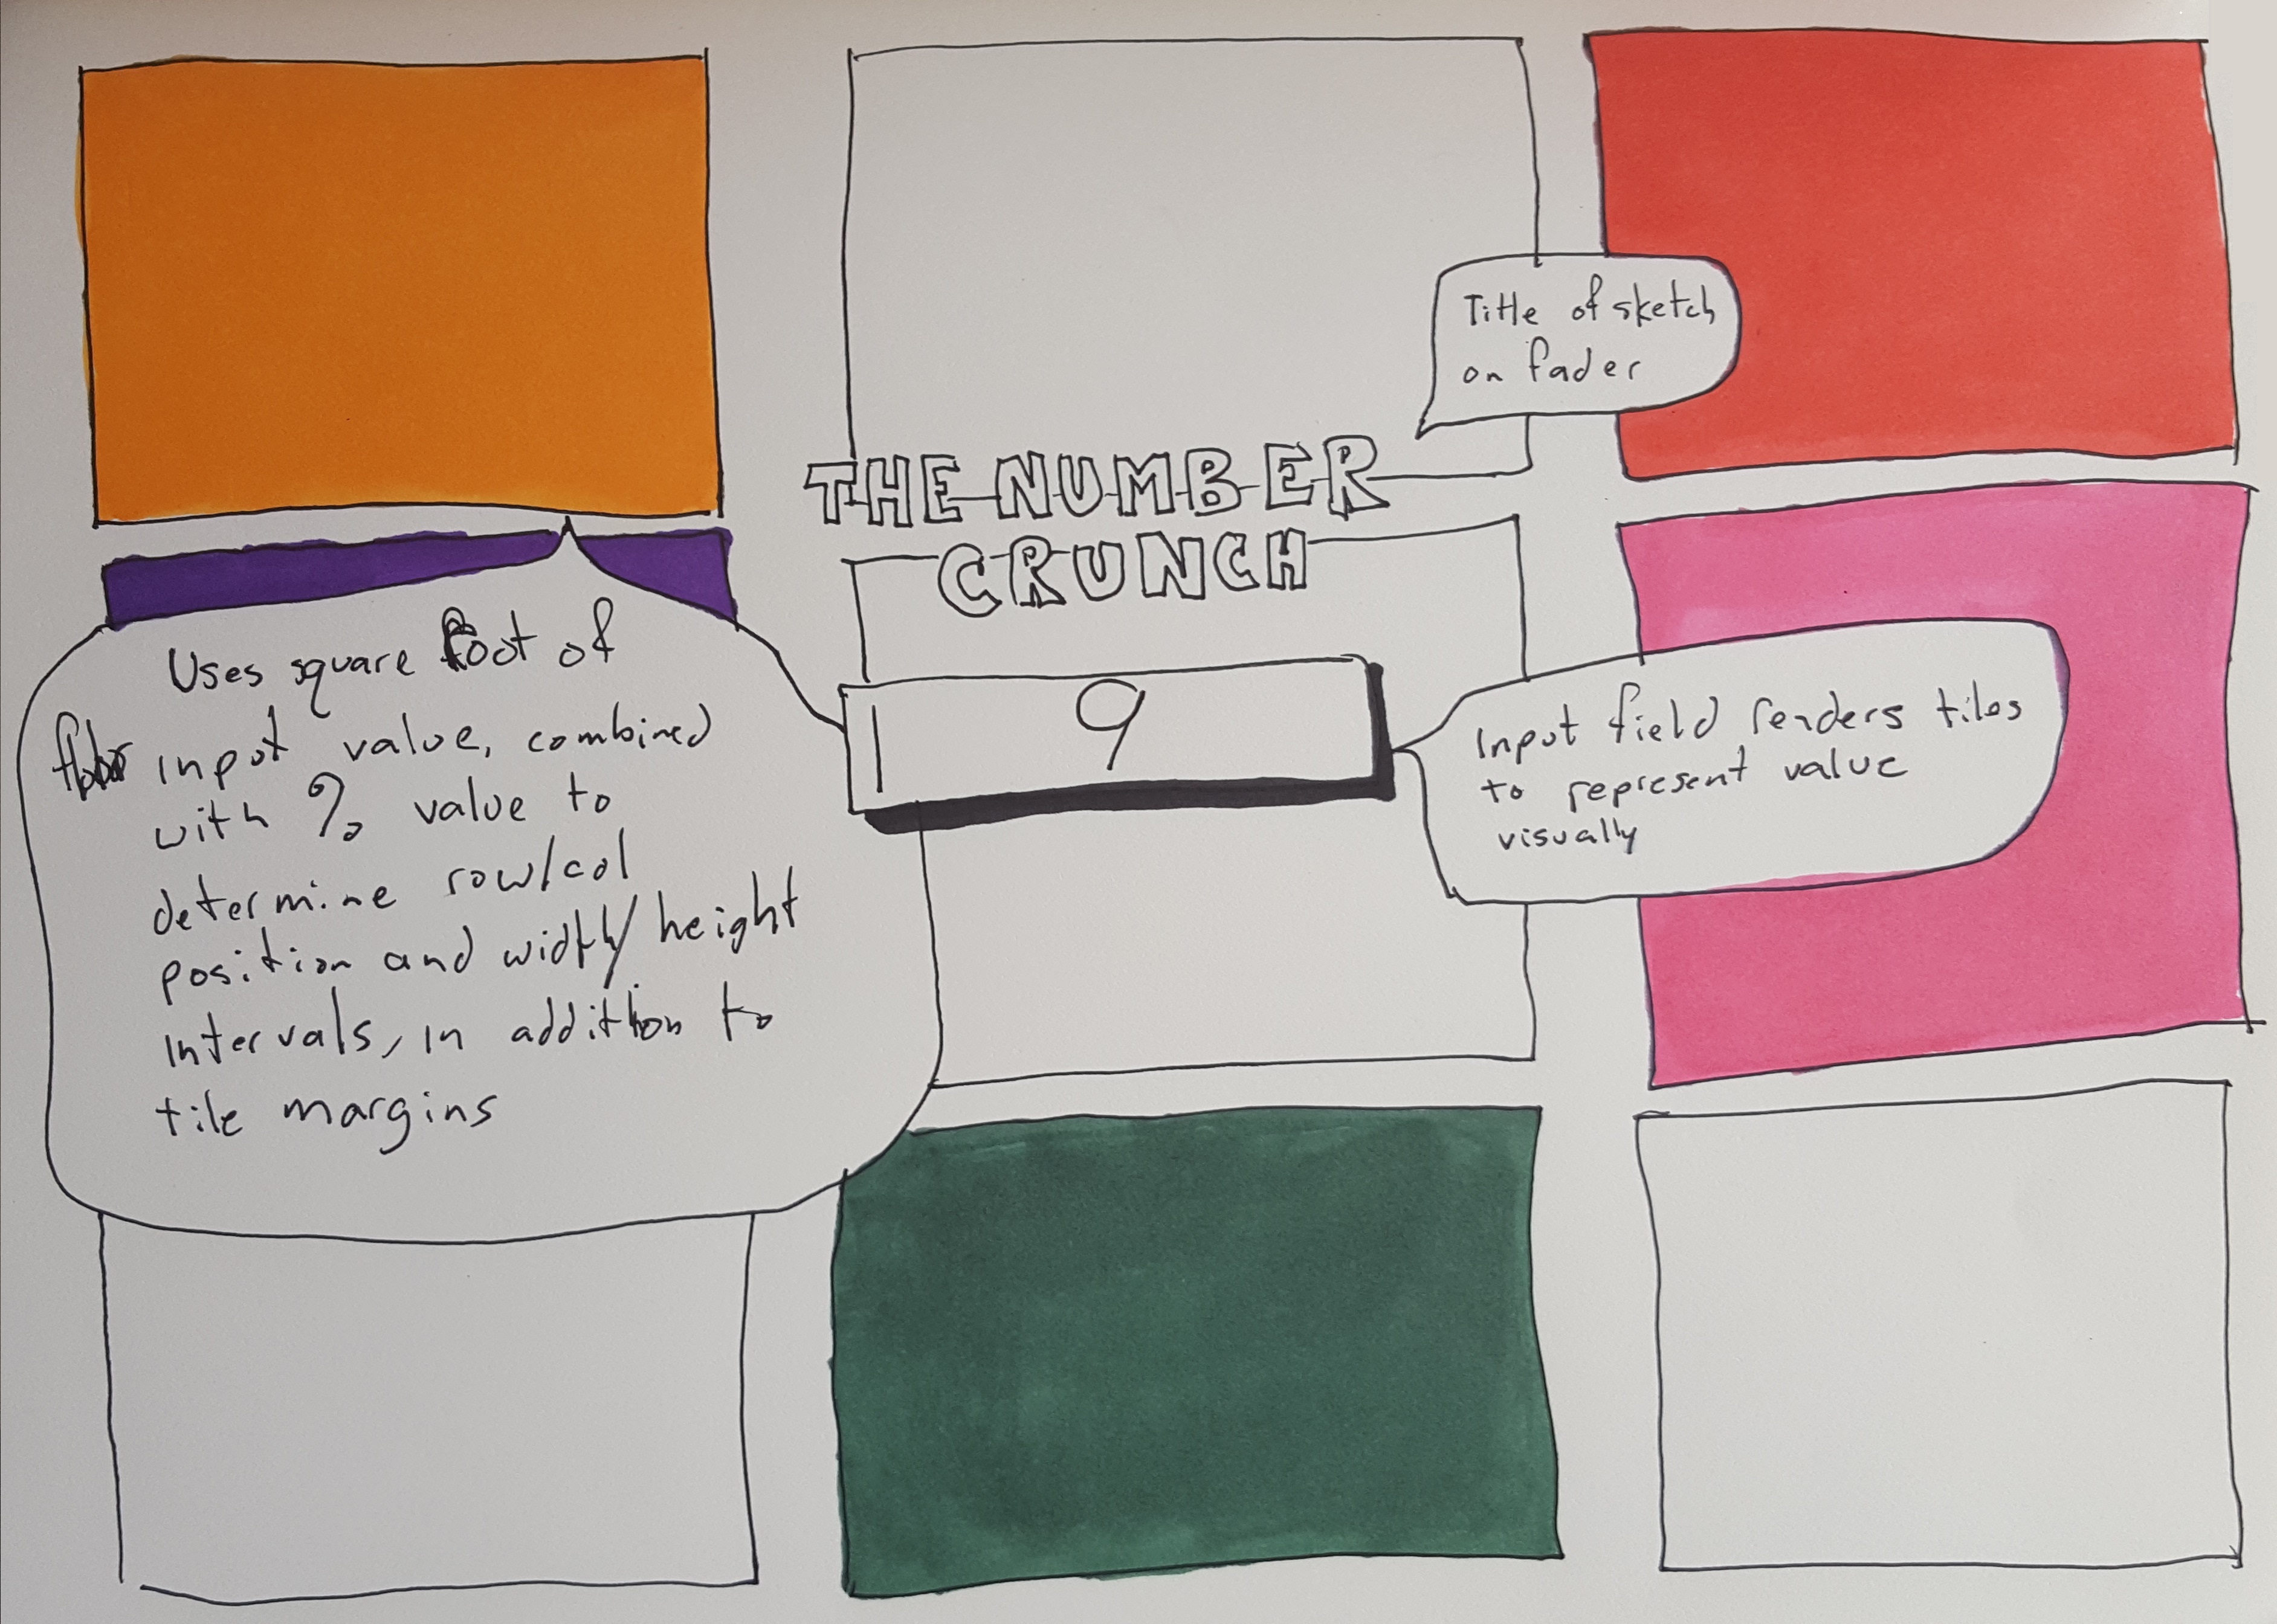 Title of sketch
on fader
THE NUMBER
CRUNCH
9
Uses square root of
input value, combined
with % value to
determine row/col
position and width/height
intervals, in addition to
tile margins
Input field renders tiles
to represent value
visually